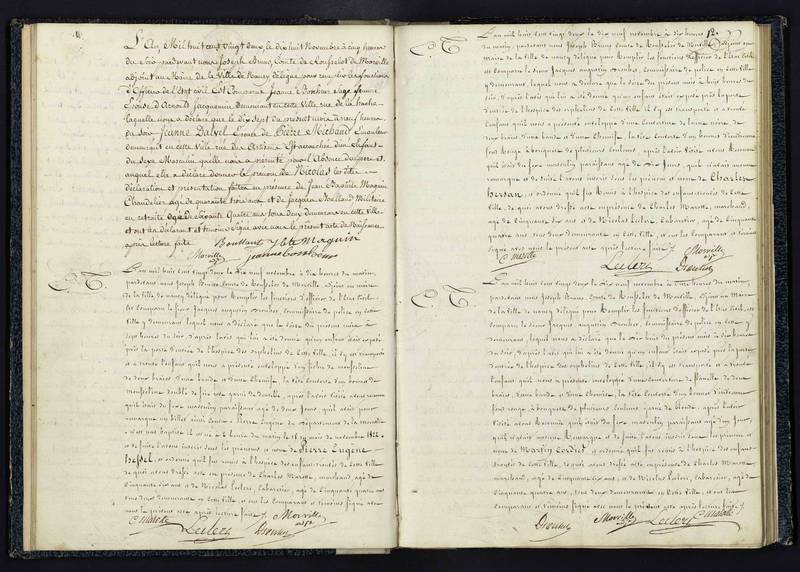 L'An, Mil huit cent vingt deux le dix huit Novembre à cinq heures
du soir pardevant nous Joseph Bruno, Comte de Rousselot de Morville
adjoint au Maire de la Ville de Nancy délégué pour remplir les fonctions
d'Officier de l'État civil Est Comparue Jeanne Bonheur Sage femme
Épouse d'Arnould Jacquemin demeurant en cette Ville rue de la hache
laquelle nous a déclaré que le dix Sept du présent mois à neuf heures
du Soir Jeanne Balvel Épouse de Pierre Michaud
demeurant en cette Ville rue Est accouchée d'un Enfant
du sexe Masculin qu'elle nous a présenté pour l'Absence du père et
auquel elle a déclaré donner le prénom de Nicolas les dites
déclaration et présentation faites en présence de Jean Baptiste Maguin
Chandelier agé de quarante trois ans et de Jacques Boulland Militaire
en retraite agé de soixante Quatre ans tous deux demeurant en cette Ville
et ont la déclarant et témoins signé avec nous le présent acte de Naissance
après lecture faite
Boulland J Bte Maguin
Morville adjt jeanne bonheur
L'an mil huit cent vingt deux le dix neuf novembre à dix heures du matin,
pardevant nous Joseph Bruno Comte de Rousselot de Morville, adjoint au maire
de la ville de nancy délégué pour remplir les fonctions d'officier de l'état civil
est comparu le sieur Jacques augustin commissaire de police en cette
ville y demeurant lequel nous a déclaré que le seize du présent mois à
sept heures du soir, d'après l'avis qui lui a été donné qu'un enfant était exposé
près la porte d'entrée de l'hospice des orphelins de cette ville, il s'y est transporté
et a trouvé l'enfant qu'il nous a présenté enveloppé
de deux braies d'une bande et d'une chemise, la tête couverte d'un bonnet de
mousseline double de garni de dentelle, après l'avoir visité avons reconnu
qu'il était du sexe masculin paraissant agé de deux jours, qu'il avait pour
remarque un billet ainsi conçu. Pierre Eugène
n'est pas baptisé il est né à heures du matin le 16 du mois de novembre 1822
et de suite l'avons inscrit sous les prénoms et nom de Pierre Eugène
hessel, et ordonné qu'il fut remis à l'hospice des enfants trouvés de cette ville
de quoi avons dressé acte en présence de Charles Marote, marchand, agé
de cinquante six ans et de Nicolas Leclerc, cabaretier, agé de cinquante quatre ans
tous deux demeurant en cette ville, et ont les comparant et témoins signé avec
nous le présent acte après lecture faite
C marote Leclerc Drouin Morville adjt
L'an mil huit cent vingt deux le dix neuf novembre à dix heures
du matin, pardevant nous Joseph Bruno comte de Rousselot de Morville, adjoint au
maire de la ville de nancy délégué pour remplir les fonctions d'officier de l'état civil
est comparu le sieur Jacques augustin commissaire de police en cette ville
y demeurant, lequel nous a déclaré que le seize du présent mois à huit heures du
soir, d'après l'avis qui lui a été donné qu'un enfant était exposé près la porte
d'entrée de l'hospice des orphelins de cette ville il s'y est transporté et a trouvé
l'enfant qu'il nous a présenté enveloppé d'une couverture de laine
deux braies d'une bande et d'une chemise, la tête couverte d'un bonnet d'indienne
fond rouge à bouquets de plusieurs couleurs, après l'avoir visité avons reconnu
qu'il était du sexe masculin paraissant agé de dix jours, qu'il n'avait aucune
remarque et de suite l'avons inscrit sous les prénom et nom de Charles
hersan, et ordonné qu'il fut remis à l'hospice des enfants trouvés de cette
ville, de quoi avons dressé acte en présence de Charles Marote, marchand,
agé de cinquante six ans et de Nicolas Leclerc, cabaretier, agé de cinquante
quatre ans, tous deux demeurant en cette ville, et ont les comparant et témoins
signé avec nous le présent acte après lecture faite
C marote Leclerc Morville adjt Drouin
L'an mil huit cent vingt deux le dix neuf novembre à dix heures du matin,
pardevant nous Joseph Bruno, comte de Rousselot de Morville, adjoint au Maire
de la ville de nancy délégué pour remplir les fonctions d'officier de l'état civil, est
comparu le sieur Jacques augustin commissaire de police en cette ville y
demeurant, lequel nous a déclaré que le dix huit du présent mois à dix heures
du soir, d'après l'avis qui lui a été donné qu'un enfant était exposé près la porte
d'entrée de l'hospice des orphelins de cette ville, il s'y est transporté et a trouvé
l'enfant qu'il nous a présenté enveloppé d'une couverture de flanelle de deux
braies, d'une bande et d'une chemise, la tête couverte d'un bonnet d'indienne
fond rouge, à bouquets de plusieurs couleurs, garni de blonde, après l'avoir
visité avons reconnu qu'il était du sexe masculin paraissant agé d'un jour,
qu'il n'avait aucune remarque et de suite l'avons inscrit sous les prénom et
nom de Martin Cordier et ordonné qu'il fut remis à l'hospice des enfants
trouvés de cette ville, de quoi avons dressé acte en présence de Charles Marote
marchand, agé de cinquante six ans et de Nicolas Leclerc, cabaretier, agé de
cinquante quatre ans, tous deux demeurant en cette ville, et ont les
comparant et témoins signé avec nous le présent acte après lecture faite
Drouin Morville adjt Leclerc C marote